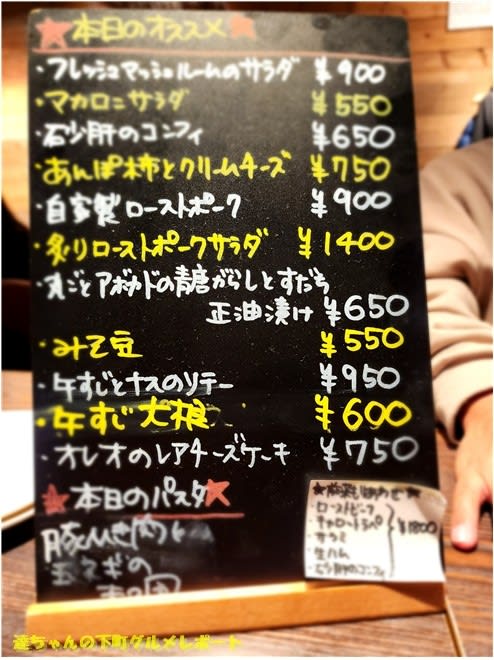 ★本日のオススメ★
・フレッシュマッシュルームのサラダ ¥900
・マカロニサラダ ¥550
・砂肝のコンフィ ¥650
・あんぽ柿とクリームチーズ ¥750
・自家製ローストポーク ¥900
・炙りローストポークサラダ ¥1400
・丸ごとアボカドの青唐がらしとすだち
正油漬け ¥650
・みそ豆 ¥550
・牛すじとナスのソテー ¥950
・牛すじ大根 ¥600
・オレオのレアチーズケーキ ¥750
★本日のパスタ★
豚ひき肉と
玉ネギの
★前菜盛り合わせ★
・ローストビーフ
・キャロットラペ
・サラミ
・生ハム
・砂肝のコンフィ
¥1800
達ちゃんの下町グルメレポート